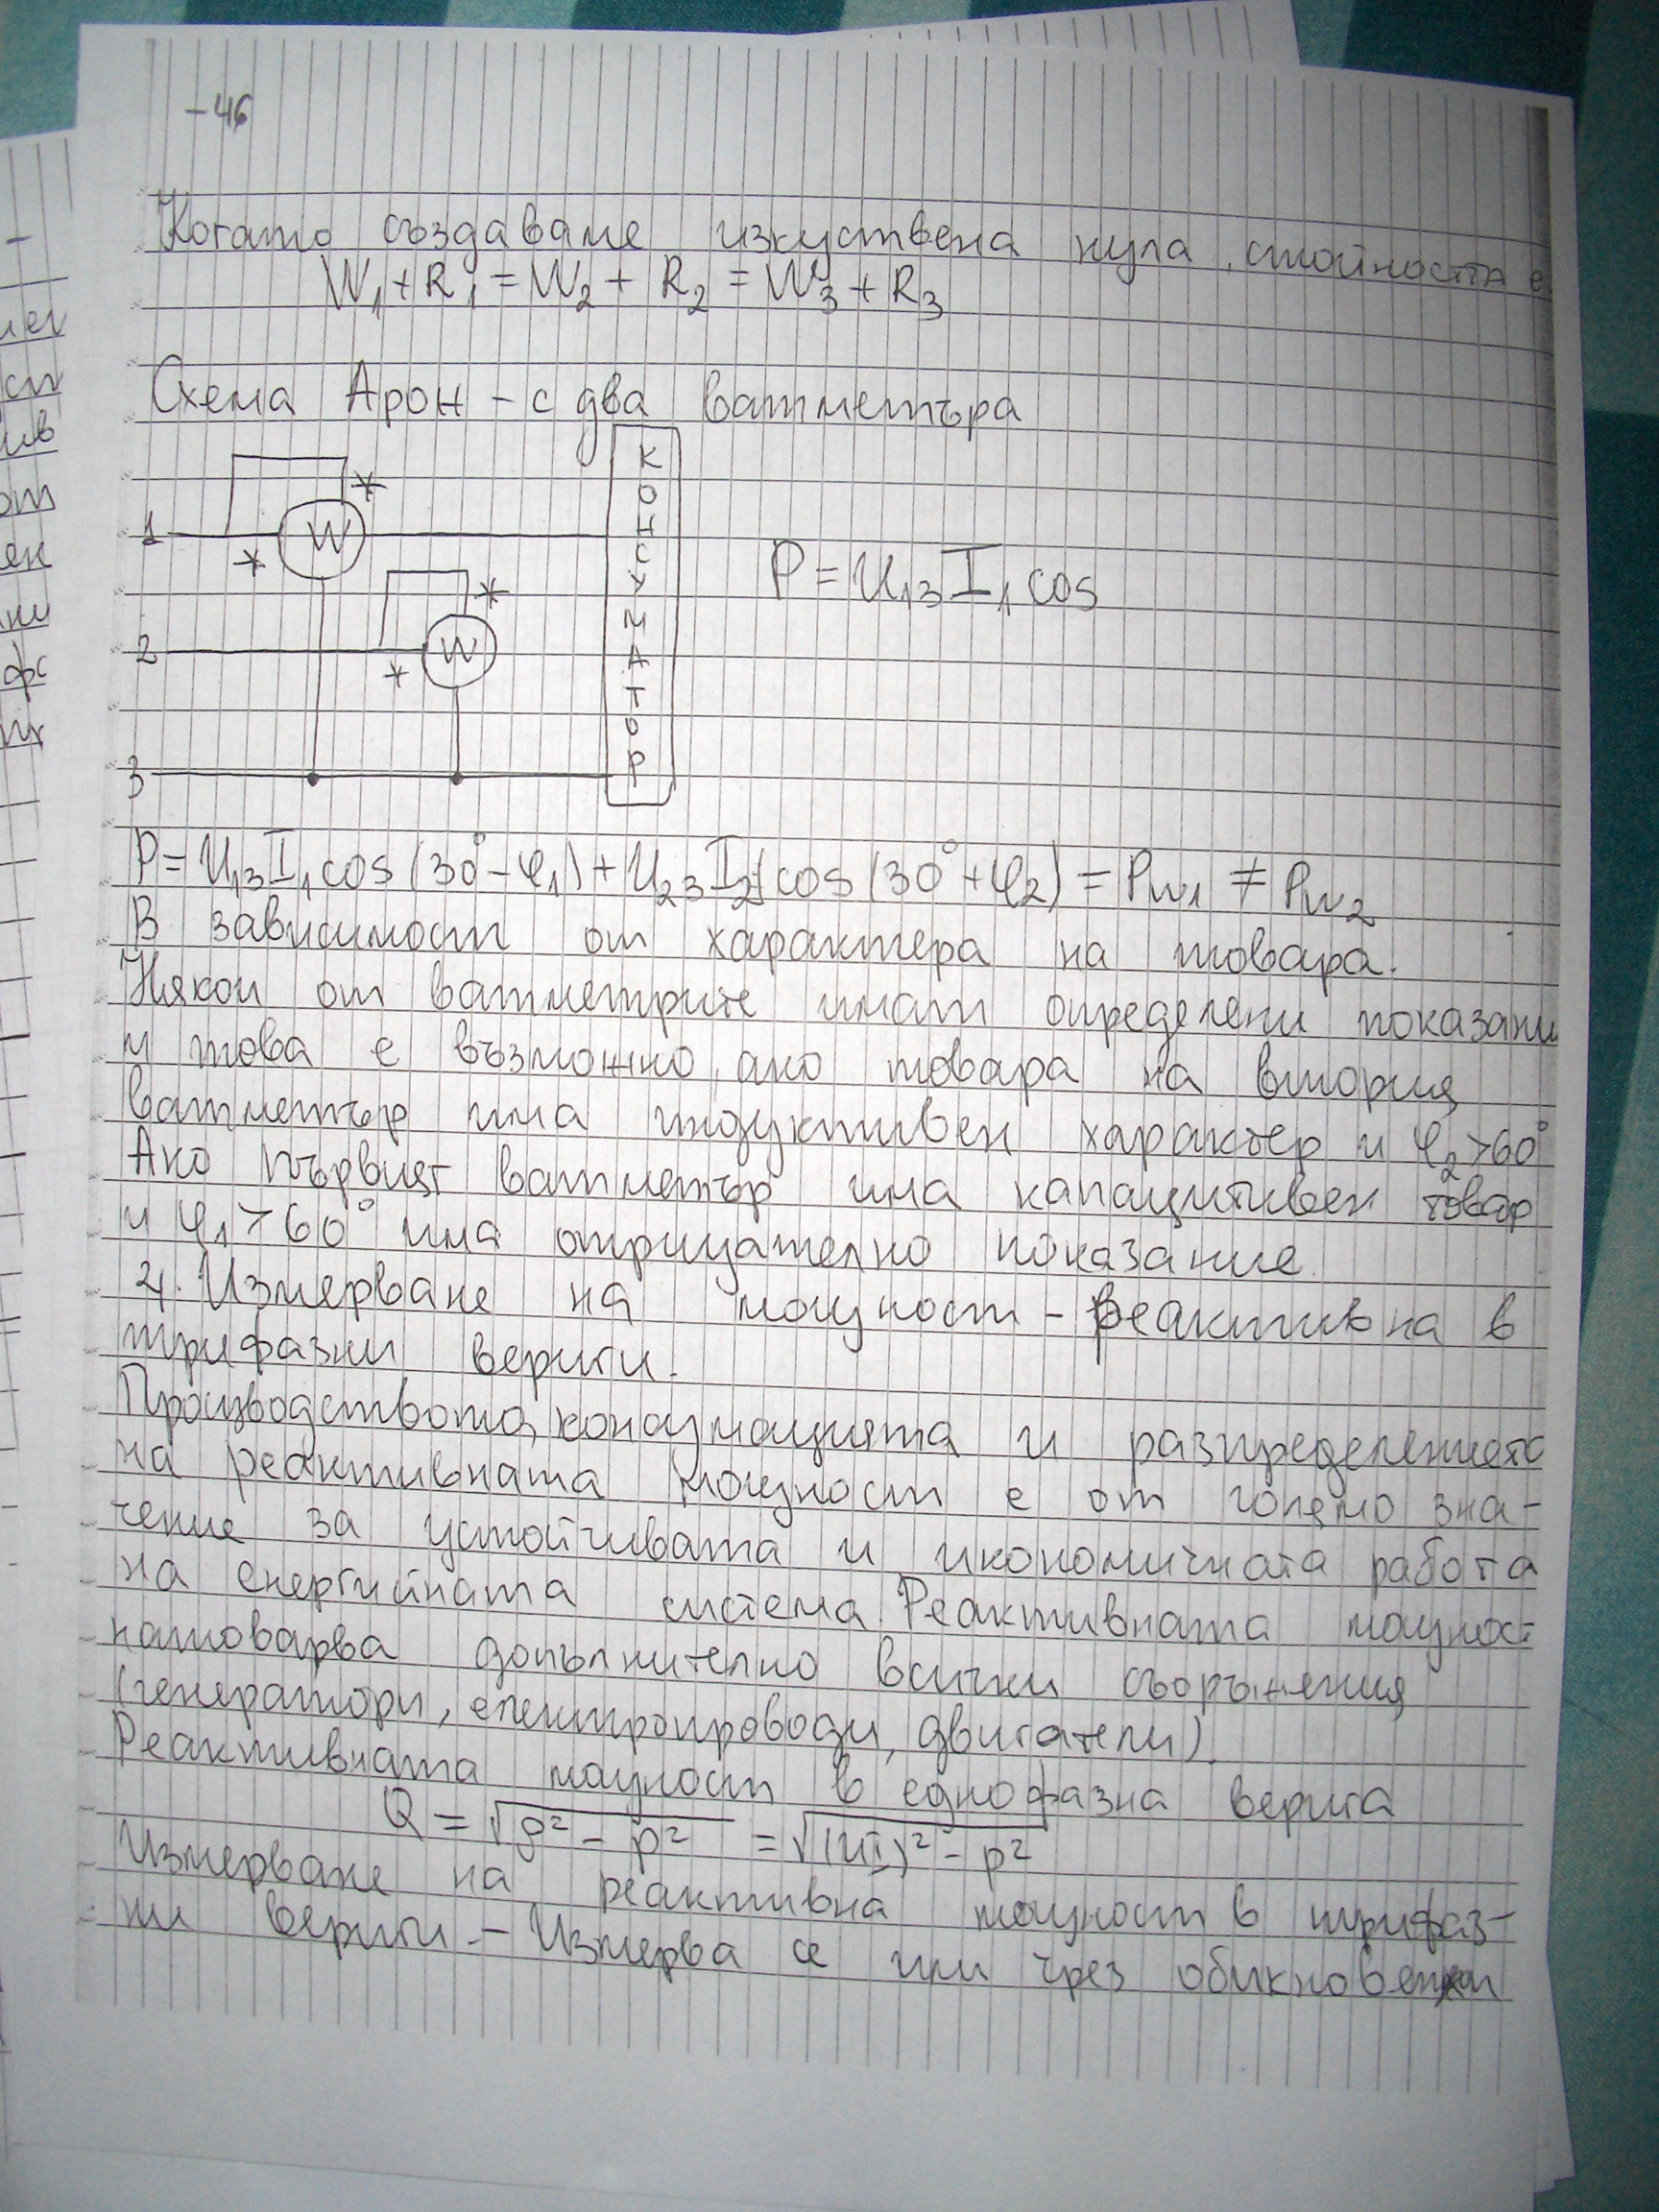 -46
Когато създаваме изкуствена нула, стойността е
W₁+R₁=W₂+R₂=W₃+R₃
Схема Арон - с два ватметъра
1
W
*
*
2
W
*
*
3
КОНСУМАТОР
P=U₁₃I₁cos
P=U₁₃I₁cos(30°-φ₁)+U₂₃I₂cos(30°+φ₂)=Pw₁≠Pw₂
В зависимост от характера на товара.
Някои от ватметрите имат определени показани
и това е възможно, ако товара на втория
ватметър има индуктивен характер и φ₂>60°
Ако първият ватметър има капацитивен товар
и φ₁>60° има отрицателно показание.
4. Измерване на мощност - Реактивна в
трифазни вериги.
Производството, консумацията и разпределението
на реактивната мощност е от голямо зна-
чение за устойчивата и икономичната работа
на енергийната система. Реактивната мощност
натоварва допълнително всички съоръжения
(генератори, електропроводи, двигатели).
Реактивната мощност в еднофазна верига
Q=√S²-P² =√(UI)²-P²
Измерване на реактивна мощност в трифаз-
ни вериги. - Измерва се или чрез обикновени